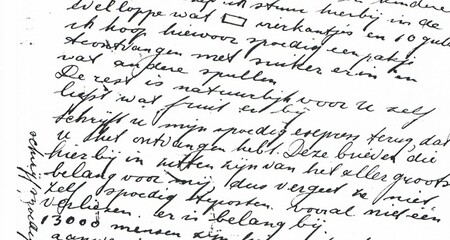 ik stuur hierbij in de
wat □ vierkantjes en 10 gulden
ik hoop hiervoor spoedig een pakje
te ontvangen met suiker erin en
wat andere spullen
De rest is natuurlijk voor u zelf
liefst wat fruit er bij
Schrijft u mijn spoedig expres terug, dat
u het ontvangen hebt. Deze brieven die
hierbij in zitten zijn van het aller grootst
belang voor mij, dus vergeet ze niet
zelf spoedig te posten. vooral niet één
verliezen. er is belang bij
13000 mensen zijn